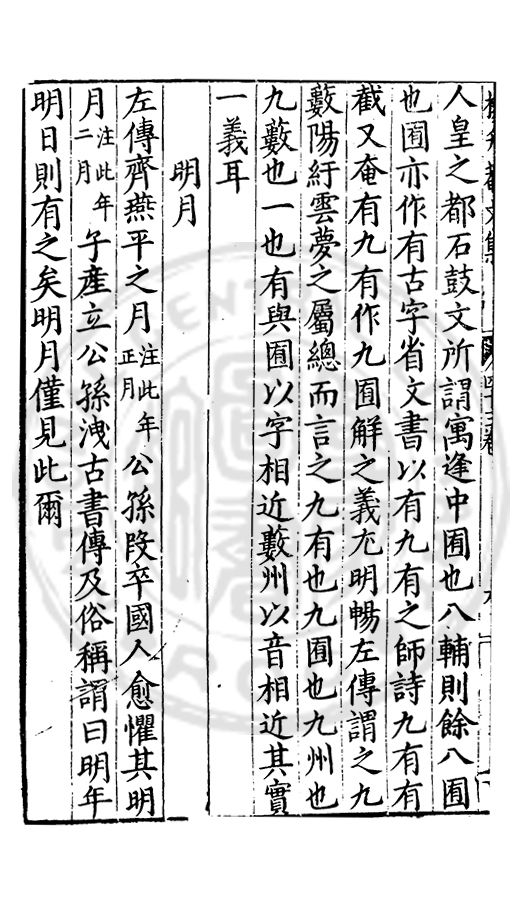 人皇之都石鼓文所謂寓逢中囿也八輔則餘八囿
也囿亦作有古字省文書以有九有之師詩九有有
截又奄有九有作九囿解之義尤明暢左傳謂之九
藪陽紆雲夢之屬總而言之九有也九囿也九州也
九藪也一也有與囿以字相近藪州以音相近其實
一義耳
明月
左傳齊燕平之月注此年正月公孫段卒國人愈懼其明
月注此年二月子產立公孫洩古書傳及俗稱謂曰明年
明日則有之矣明月僅見此爾